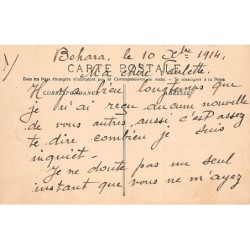 1)
Behara. le 10 Xbre 1914.
CARTE POSTALE
Ma chère Paulette.
Tous les Pays étrangers n'acceptent pas la Correspondance au recto. - Se renseigner à la Poste
CORRESPONDANCE
ADRESSE
Il y a bien longtemps que
je n'ai reçu aucune nouvelle
de vous autres, aussi c'est assez
te dire combien je suis
inquiet -
Je ne doute pas un seul
instant que vous ne m'ayez